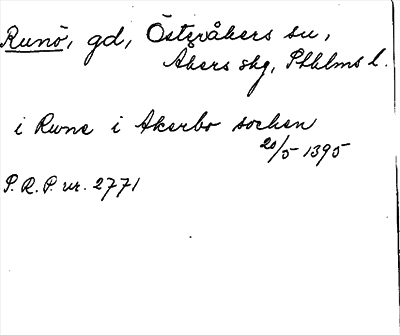 Runö, gd, Österåkers sn,
Åkers skg, Sthlms l.
i Rune i Akerbo socken
20/5 1395
P.R.P. nr. 2771